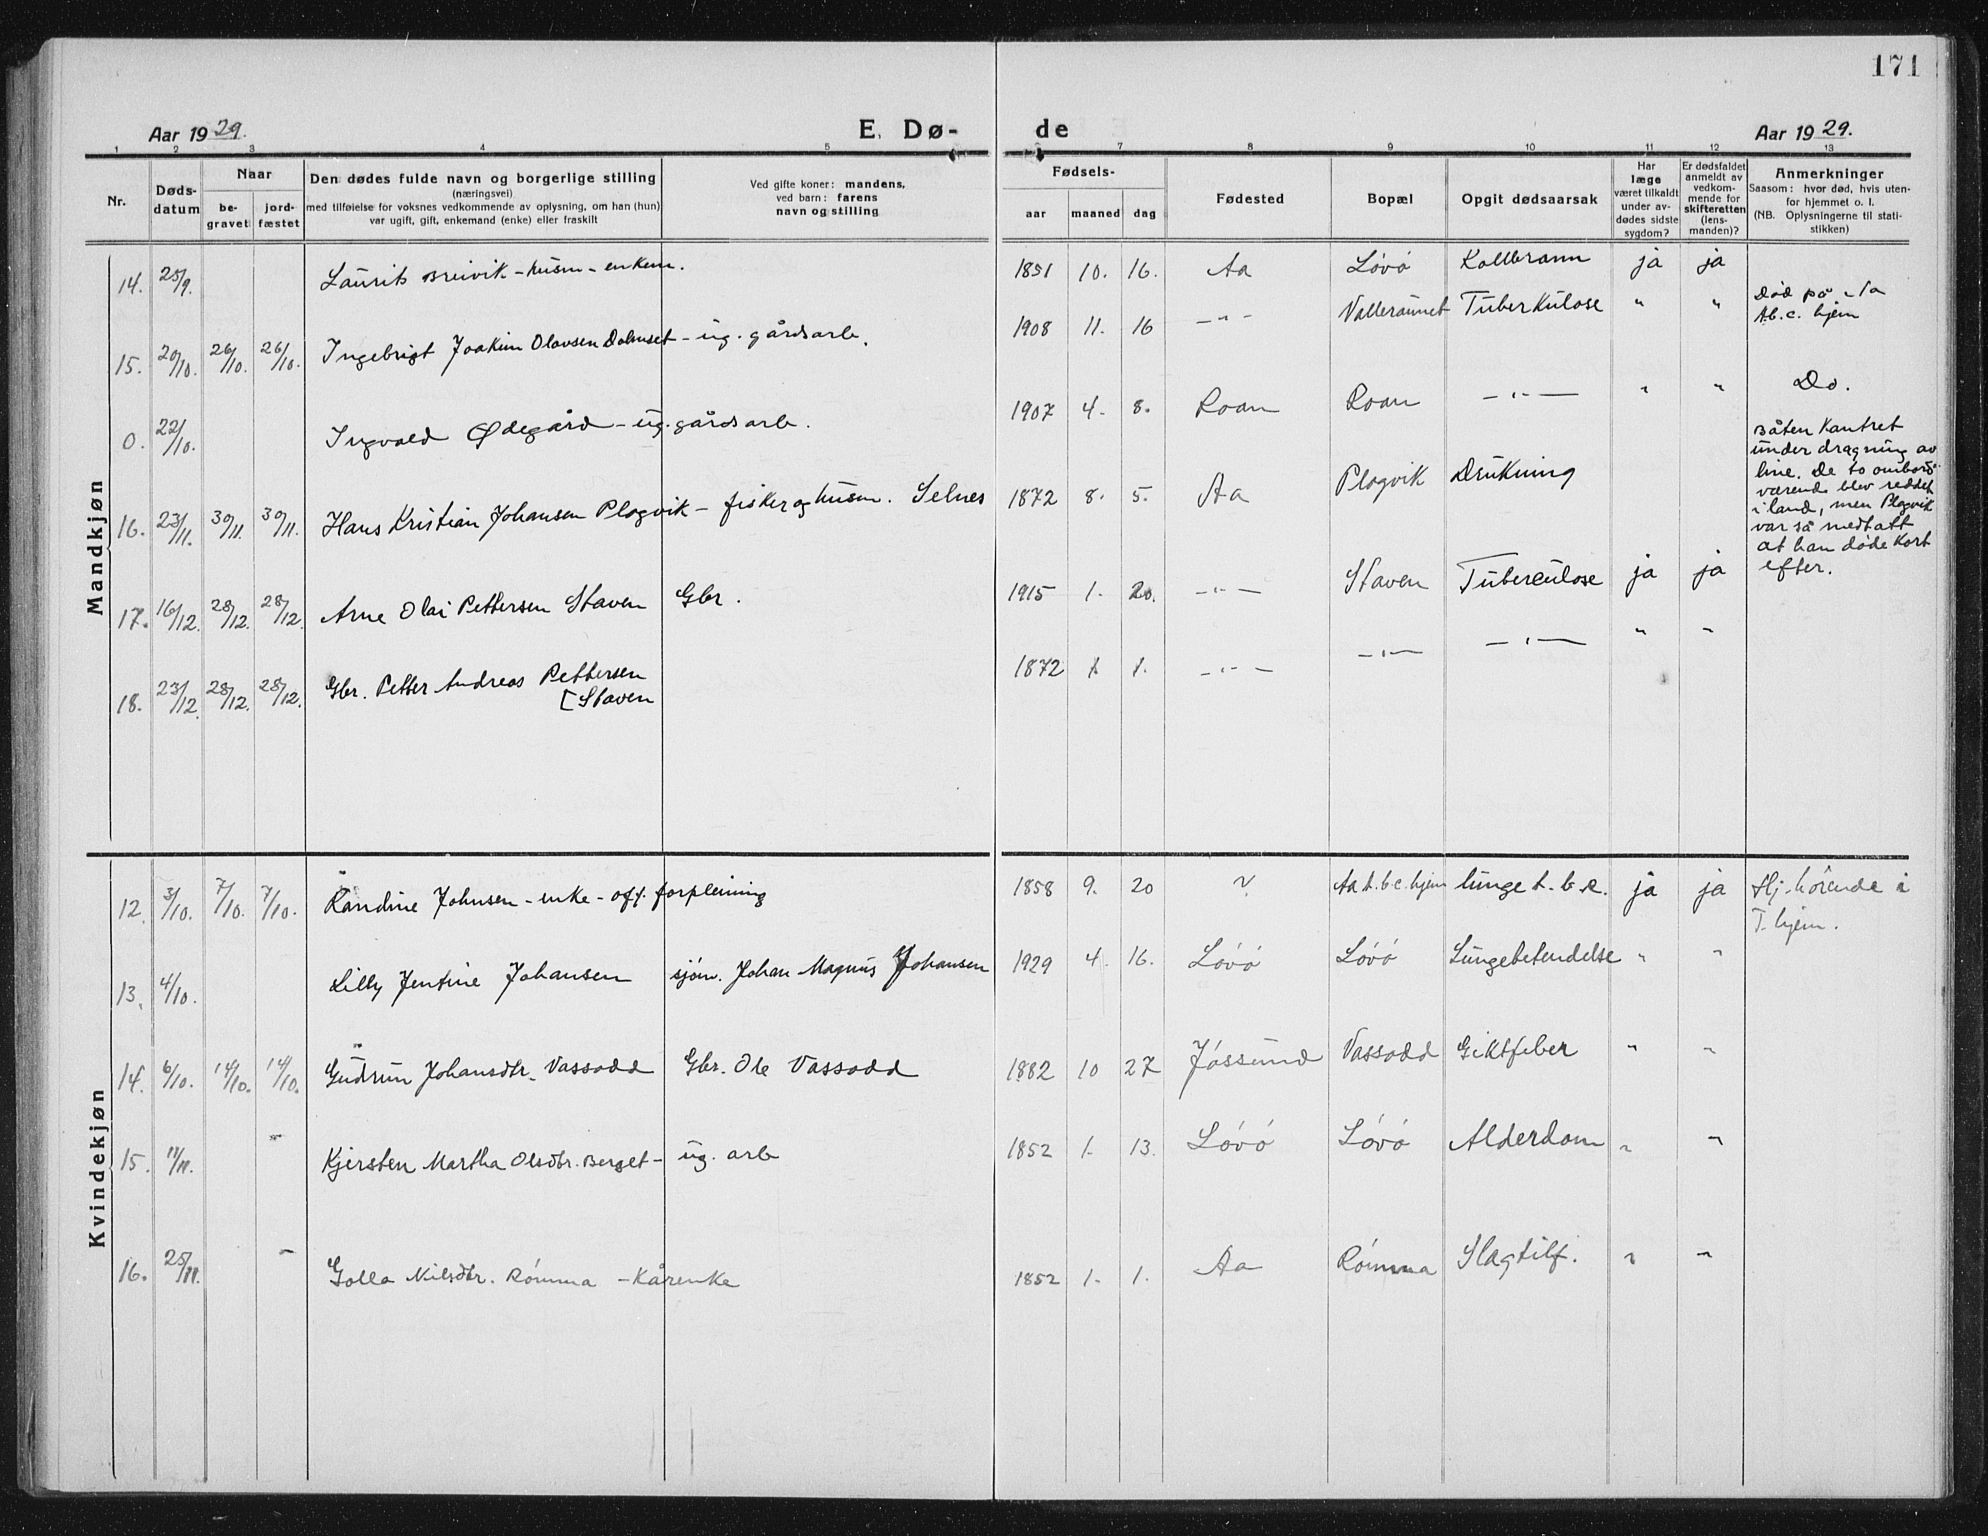 171
Aar 1929.
E. Dø-
de
Aar 1929.
1 2 3 4 5 7 8 9 10 11 12 13
Nr.
Døds-
datum
Naar
be-
gravet
jord-
fæstet
Den dødes fulde navn og borgerlige stilling
(næringsvei)
med tilføielse for voksnes vedkommende av oplysning, om han (hun)
var ugift, gift, enkemand (enke) eller fraskilt
Ved gifte koner: mandens,
ved barn: farens
navn og stilling
Fødsels-
aar maaned dag
Fødested
Bopæl
Opgit dødsaarsak
Har
læge
været tilkaldt
under av-
dødes sidste
sygdom?
Er dødsfaldet
anmeldt av
vedkom-
mende for
skifteretten
(lens-
manden)?
Anmerkninger
Saasom: hvor død, hvis uten-
for hjemmet o. l.
(NB. Oplysningerne til stati-
stikken)
Mandkjøn
14. 25/9. Laurits Breivik - husm - enkem. 1851 10. 16. Aa Løvø Koldbrann ja ja
15. 20/10. 26/10. 26/10. Ingebrigt Joakim Olavsen Dalmset - ug. gårdsarb. 1908 11. 16 -"- Vallersunet Tuberkulose " " Død på
t.b.c. hjem
0. 22/10. Ingvald Ødegård - ug. gårdsarb. 1907 4. 8. Roan Roan -"- " " Do.
16. 23/11. 30/11. 30/11. Hans Kristian Johansen Plogvik - fisker og husm. Selnes 1872 8. 5. Aa Plogvik Drukning
Båten kantret
under dragning av
line. De to ombord-
værende blev reddet
i land, men Plogvik
var så medtatt
at han døde kort
efter.
17. 16/12. 28/12. 28/12. Arne Olai Pettersen Staven Gbr. 1915 1. 20. -"- Staven Tuberculose ja ja
18. 23/12. 28/12. 28/12. Gbr. Petter Andreas Pettersen
[Staven 1872 1. 1. -"- -"- -"- " "
Kvindekjøn
12. 3/10. 7/10. 7/10. Randine Johnsen - enke - off. forpleining 1858 9. 20 ? Aa t.b.c. hjem lunge t.b.c. ja ja Hj.hørende i
T. hjem.
13. 4/10. Lilly Jentine Johansen sjøm. Johan Magnus Johansen 1929 4. 16. Løvø Løvø Lungebetendelse " "
14. 6/10. 14/10. 14/10. Gudrun Johansdtr. Vassodd Gbr. Ole Vassodd 1882 10 27 Jøssund Vassodd Giktfeber " "
15. 11/11. Kjersten Martha Olsdtr. Berget - ug. arb 1852 1. 13. Løvø Løvø Alderdom " "
16. 25/11. Golla Nilsdtr. Rømma - Kårenke 1852 1. 1. Aa Rømma Slagtilf. " "